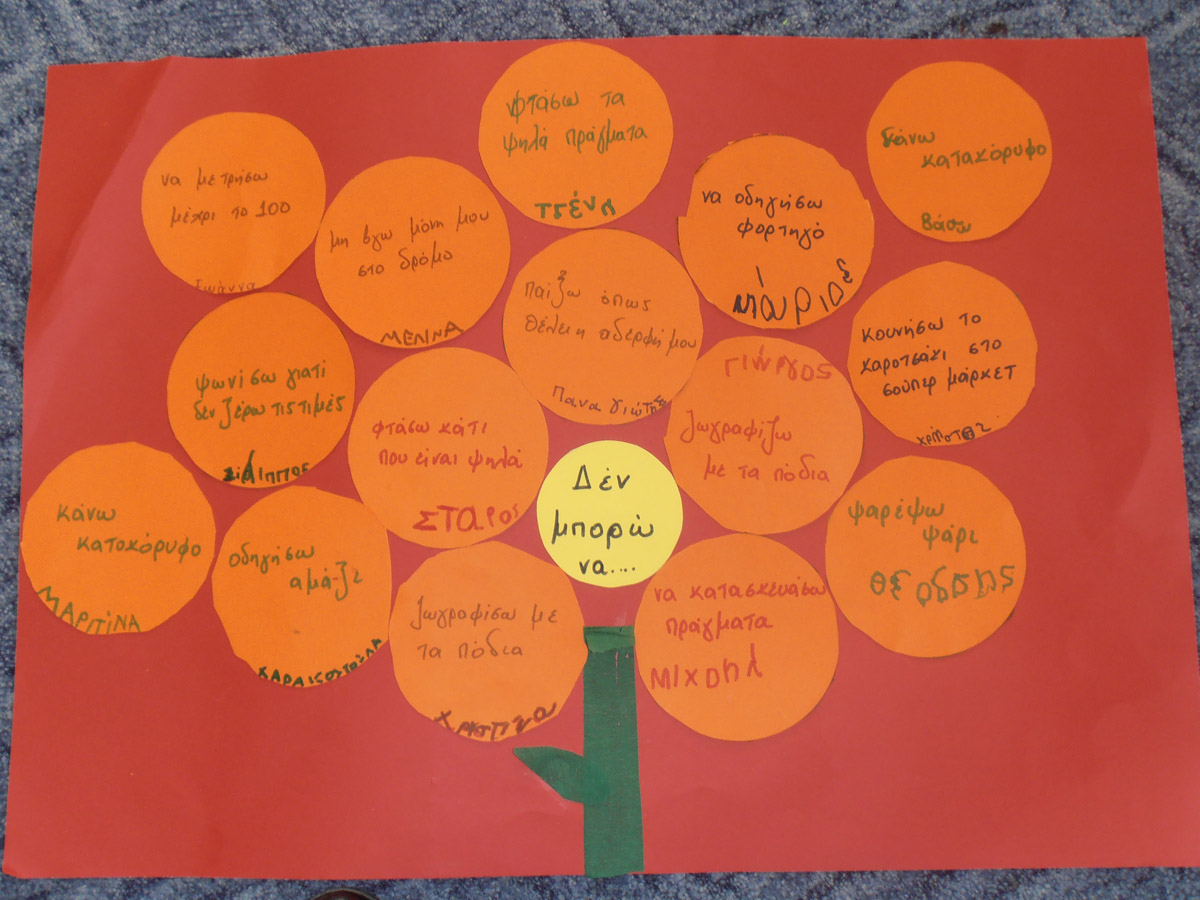 φτάσω τα
ψηλά πράγματα
τζένη
κάνω
κατακόρυφο
Βάσω
να μετρήσω
μέχρι το 100
Ιωάννα
μη βγω μόνη μου
στο δρόμο
ΜΕΛΙΝΑ
να οδηγήσω
φορτηγό
μάριος
παίξω όπως
θέλει η αδερφή μου
Παναγιώτης
κουνήσω το
καροτσάκι στο
σούπερ μάρκετ
ψωνίσω γιατί
δεν ξέρω τις τιμές
φτάσω κάτι
που είναι ψηλά
ΣΤΑρος
ΓΙώΡγος
ζωγραφίζω
με τα πόδια
Δέν
μπορώ
να....
κάνω
κατακόρυφο
ΜΑΡΤΙΝΑ
οδηγήσω
αμάξι
ζωγραφίσω με
τα πόδια
Χριστινα
να κατασκευάσω
πράγματα
ΜΙΧΑηλ
ψαρέψω
ψάρι